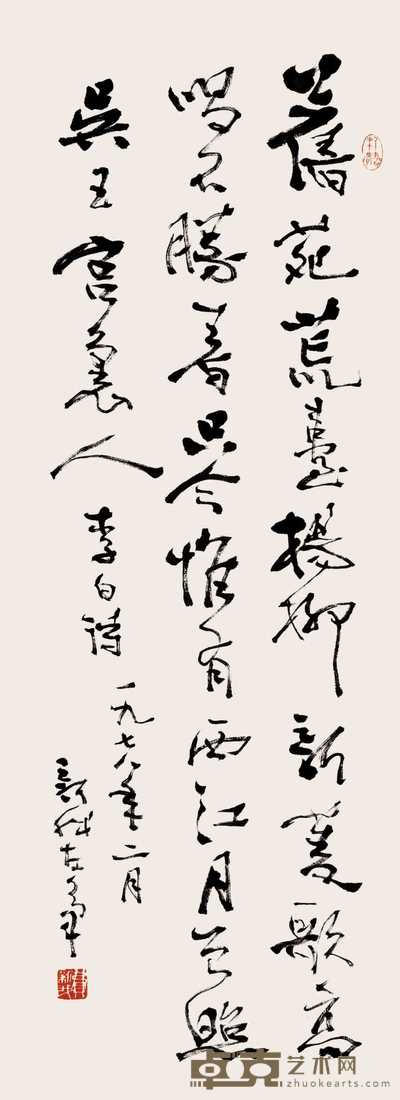 舊苑荒臺楊柳新菱歌高
唱不勝春只今惟有西江月曾照
吳王宫裏人
李白詩
一九七八年二月
新我左筆
卓克艺术网
zhuokearts.com